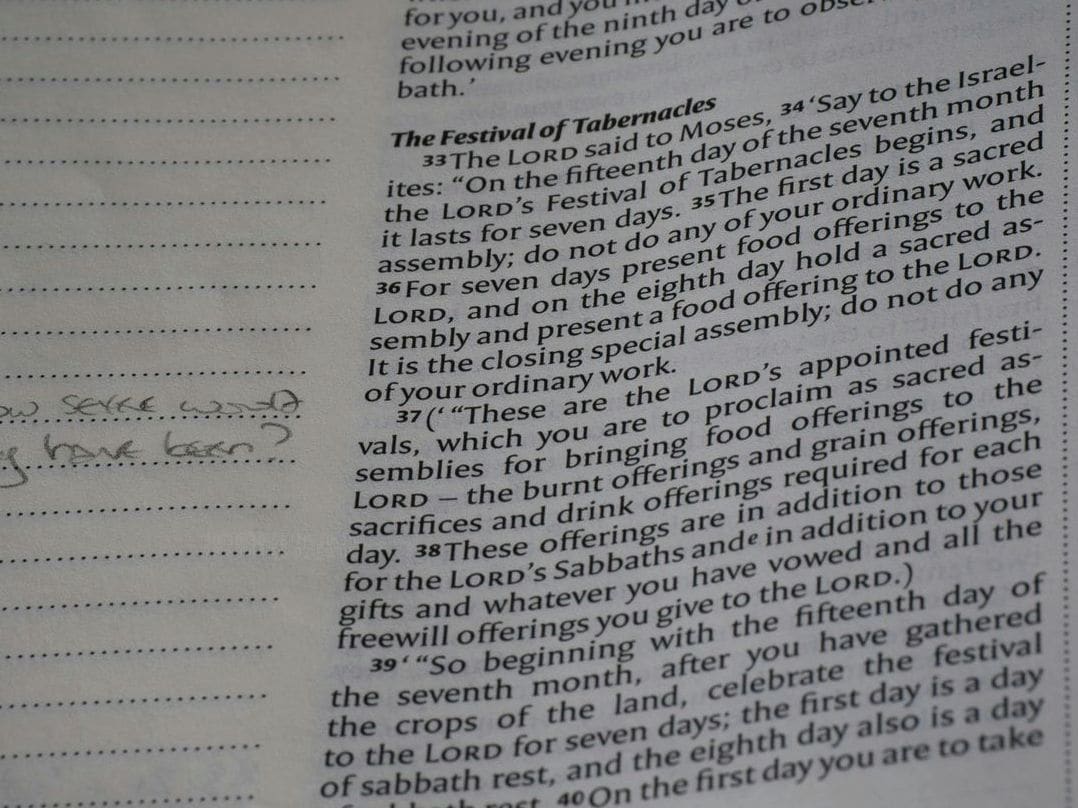 for you, and you
evening of the ninth day
following evening you are to
bath.’
The Festival of Tabernacles
33 The LORD said to Moses, 34 ‘Say to the Israel-
ites: “On the fifteenth day of the seventh month
the LORD’s Festival of Tabernacles begins, and
it lasts for seven days. 35 The first day is a sacred
assembly; do not do any of your ordinary work.
36 For seven days present food offerings to the
LORD, and on the eighth day hold a sacred as-
sembly and present a food offering to the LORD.
It is the closing special assembly; do not do any
of your ordinary work.
37 (‘ “These are the LORD’s appointed festi-
vals, which you are to proclaim as sacred as-
semblies for bringing food offerings to the
LORD – the burnt offerings and grain offerings,
sacrifices and drink offerings required for each
day. 38 These offerings are in addition to those
for the LORD’s Sabbaths and e in addition to your
gifts and whatever you have vowed and all the
freewill offerings you give to the LORD.)
39 ‘ “So beginning with the fifteenth day of
the seventh month, after you have gathered
the crops of the land, celebrate the festival
to the LORD for seven days; the first day is a day
of sabbath rest, and the eighth day also is a day
rest. 40 On the first day you are to take
have been?